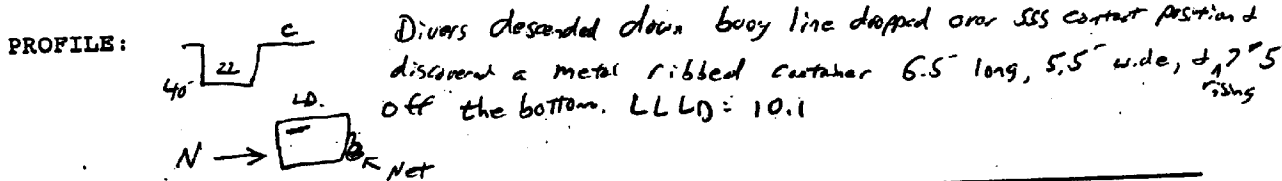 PROFILE:
C
22
40
Divers descended down buoy line dropped over SSS contact position &
discovered a metal ribbed container 6.5 long, 5.5 wide, &
rising
off the bottom. LLLD: 10.1
LD.
N
Net